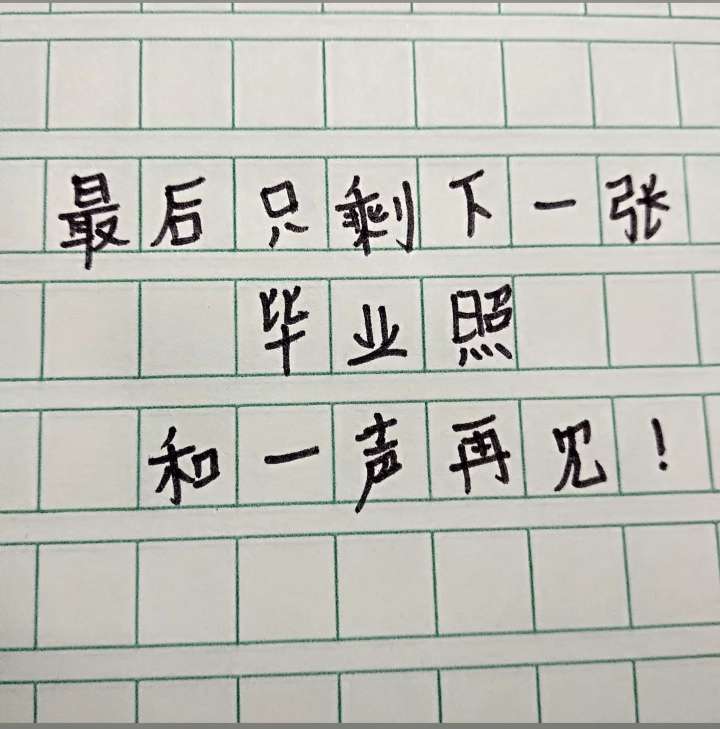 最后只剩下一张
毕业照
和一声再见！